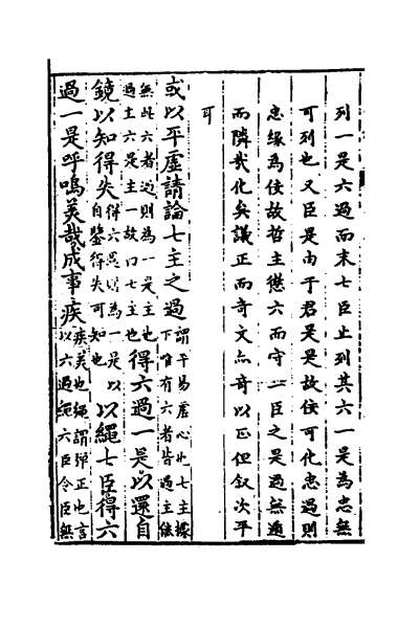 列一是六過而末七臣止列其六一是為忠無
可列也又臣是由于君是是故佞可化忠過則
忠緣為佞故哲主懲六而守一臣之是過無遁
而隣哉化矣議正而奇文亦奇以正但叙次平
耳
或以平虛請論七主之過謂平易虛心也七主據
下唯有六者皆過主依
無此六者過則為一是主也
過主六是主一故曰七主也得六過一是以還自
鏡以知得失得六過則為一是以
自鑒得失可知也以繩七臣得六
過一是呼嗚美哉成事疾疾美也繩謂彈正也言
以六過繩六臣令臣無